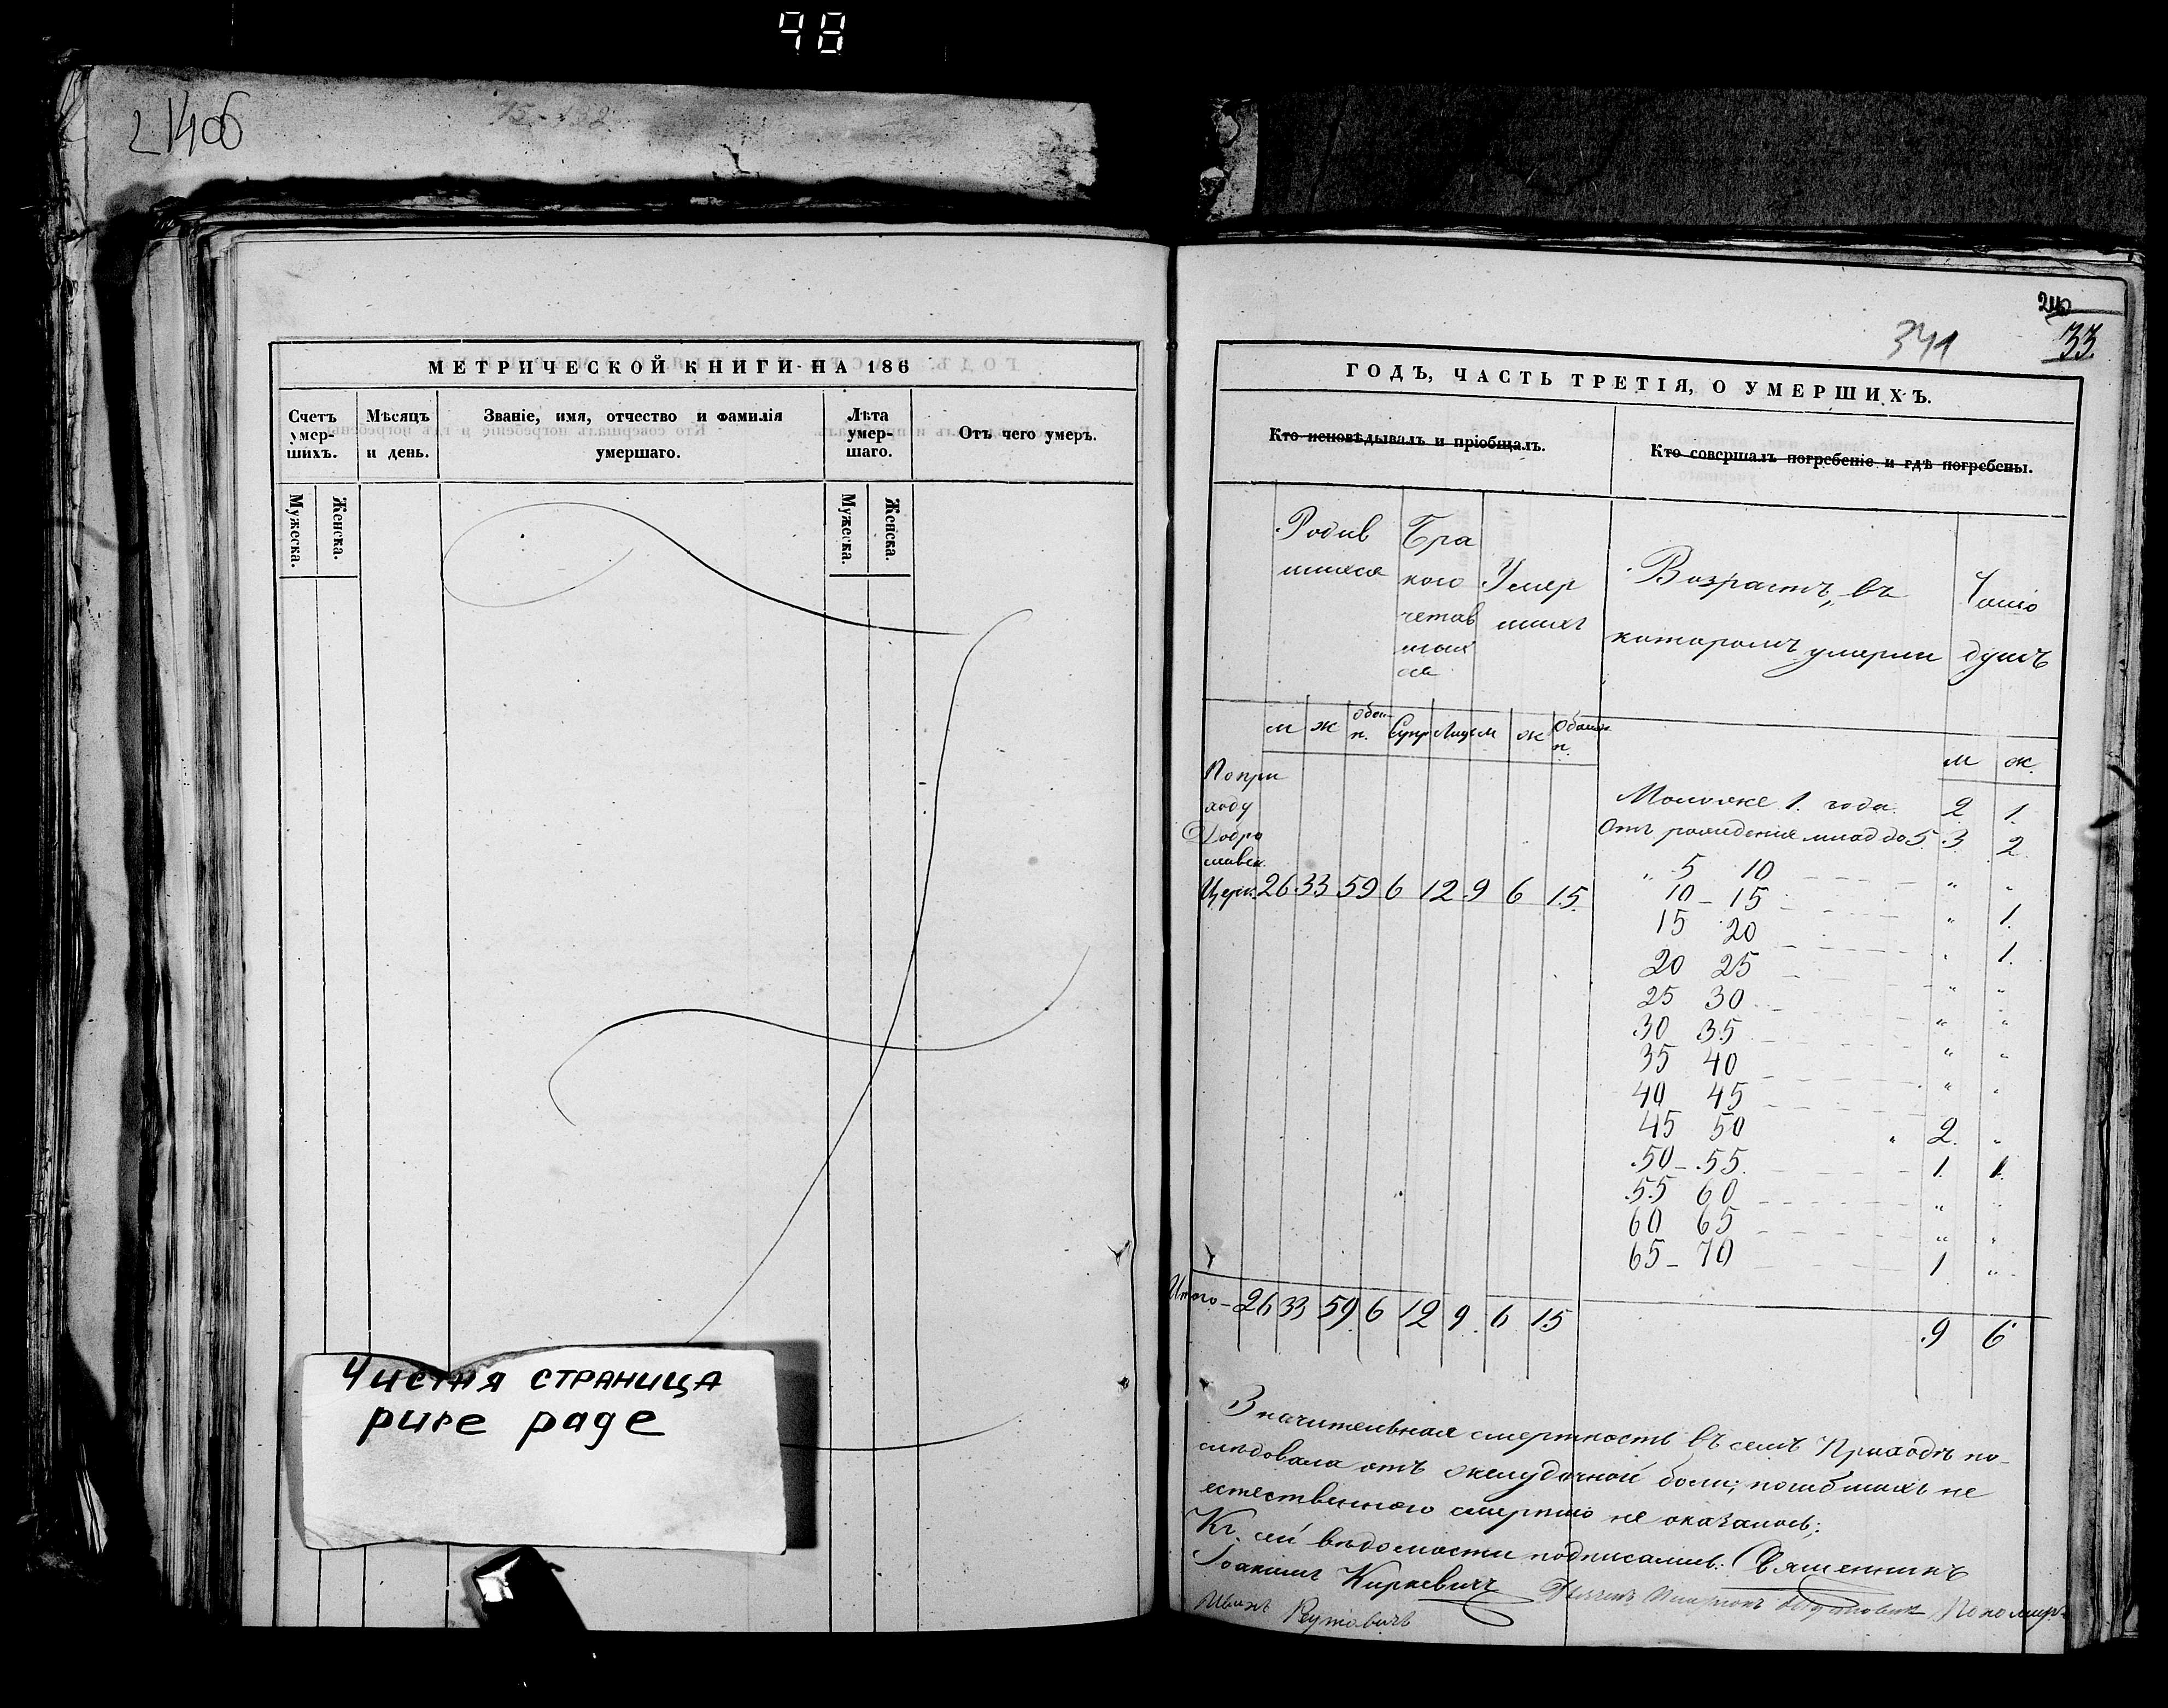 48
21406
МЕТРИЧЕСКОЙ КНИГИ НА 186
Счетъ умер-шихъ.
Мѣсяцъ и день.
Званіе, имя, отчество и фамилія умершаго.
Лѣта умер-шаго.
Отъ чего умеръ.
Мужеска.
Женска.
Мужеска.
Женска.
Чистая страница
pure page
341
33.
ГОДЪ, ЧАСТЬ ТРЕТІЯ, О УМЕРШИХЪ.
Кто исповѣдывалъ и пріобщалъ.
Кто совершалъ погребеніе и гдѣ погребены.
Родив
шихся
Бра
кого
четав
шых
ся
Умер
шихъ
Возрастъ, въ
которомъ умерли
Число
душъ
м ж обои п. Супр Лиц м ж Обоих п.
м ж.
По при
ходу
Добро
славск.
Церк. 26 33 59 6 12 9 6 15.
Моложе 1. года 2 1.
Отъ рожденія млад до 5 3 2
„ 5 10 " "
10 - 15 " 1.
15 20 " 1.
20 25 " "
25 30 " "
30 35 " "
35 40 " "
40 45
45 50 2. "
50 - 55. 1. 1.
55 60 " "
60 65 " "
65 - 70 1 "
Итого - 26 33 59 6 12 9 6 15
9 6
Значительная смертность въ семъ Приходѣ по-
слѣдовала отъ желудочной боли; погибшихъ не
естественного смертію не оказалось;
Къ сей вѣдомости подписались: Священникъ
Іоакимъ Киркевичъ Пономарь
Иванъ Реутовичъ